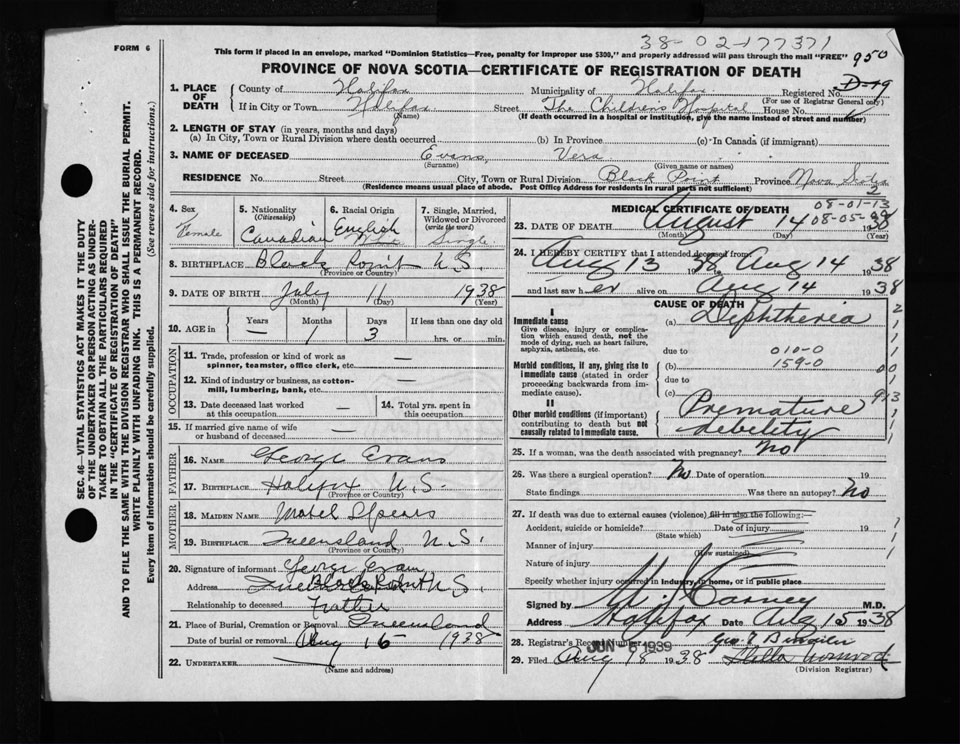 FORM 6
38-02-177371
This form if placed in an envelope, marked "Dominion Statistics—Free, penalty for improper use $300," and properly addressed will pass through the mail "FREE" 950
PROVINCE OF NOVA SCOTIA—CERTIFICATE OF REGISTRATION OF DEATH
1. PLACE OF DEATH
County of Halifax Municipality of Halifax Registered No. D-19
(For use of Registrar General only)
If in City or Town Halifax Street The Children's Hospital House No.
(Name) (If death occurred in a hospital or institution, give the name instead of street and number)
2. LENGTH OF STAY (in years, months and days)
(a) In City, Town or Rural Division where death occurred (b) In Province (c) In Canada (if immigrant)
3. NAME OF DECEASED Evans, Vera
(Surname) (Given name or names)
RESIDENCE No. Street City, Town or Rural Division Black Point Province Nova Scotia
(Residence means usual place of abode. Post Office Address for residents in rural parts not sufficient) 2
4. Sex Female
5. Nationality (Citizenship) Canadian
6. Racial Origin English
7. Single, Married, Widowed or Divorced (write the word) Single
8. BIRTHPLACE Black Point N.S.
(Province or Country)
9. DATE OF BIRTH July 11 1938
(Month) (Day) (Year)
10. AGE in Years Months Days If less than one day old
— 1 3 hrs. or min.
OCCUPATION
11. Trade, profession or kind of work as spinner, teamster, office clerk, etc. —
12. Kind of industry or business, as cotton-mill, lumbering, bank, etc. —
13. Date deceased last worked at this occupation —
14. Total yrs. spent in this occupation
15. If married give name of wife or husband of deceased —
FATHER
16. NAME George Evans
17. BIRTHPLACE Halifax N.S.
(Province or Country)
MOTHER
18. MAIDEN NAME Mabel Spears
19. BIRTHPLACE Queensland N.S.
(Province or Country)
20. Signature of informant George Evans
Address Black Point N.S.
Relationship to deceased Father
21. Place of Burial, Cremation or Removal Queensland
Date of burial or removal Aug 16 1938
22. UNDERTAKER
(Name and address)
MEDICAL CERTIFICATE OF DEATH
08-01-13
23. DATE OF DEATH August 14 1938
08-05-99
(Month) (Day) (Year)
24. I HEREBY CERTIFY that I attended deceased from:
Aug 13 1938 Aug 14 1938
and last saw her alive on Aug 14 1938
CAUSE OF DEATH
I
Immediate cause
Give disease, injury or complication which caused death, not the mode of dying, such as heart failure, asphyxia, asthenia, etc.
(a) Diphtheria
due to 010-0
Morbid conditions, if any, giving rise to immediate cause (stated in order proceeding backwards from immediate cause)
(b) 159-0
due to
(c)
II
Other morbid conditions (if important) contributing to death but not causally related to immediate cause.
Premature debility
25. If a woman, was the death associated with pregnancy? No
26. Was there a surgical operation? No Date of operation 19
State findings Was there an autopsy? No
27. If death was due to external causes (violence) fill in also the following:
Accident, suicide or homicide? Date of injury 19
(State which)
Manner of injury
(How sustained)
Nature of injury
Specify whether injury occurred in industry, in home, or in public place
Signed by Carney M.D.
Address Halifax Date Aug 15 1938
28. Registrar's Record Number
JUN - 6 1939
29. Filed Aug 18 1938
(Division Registrar)
SEC. 46—VITAL STATISTICS ACT MAKES IT THE DUTY
OF THE UNDERTAKER OR PERSON ACTING AS UNDER-
TAKER TO OBTAIN ALL THE PARTICULARS REQUIRED
IN THE "CERTIFICATE OF REGISTRATION OF DEATH"
AND TO FILE THE SAME WITH THE DIVISION REGISTRAR WHO SHALL ISSUE THE BURIAL PERMIT.
WRITE PLAINLY WITH UNFADING INK. THIS IS A PERMANENT RECORD.
Every item of information should be carefully supplied. (See reverse side for instructions.)